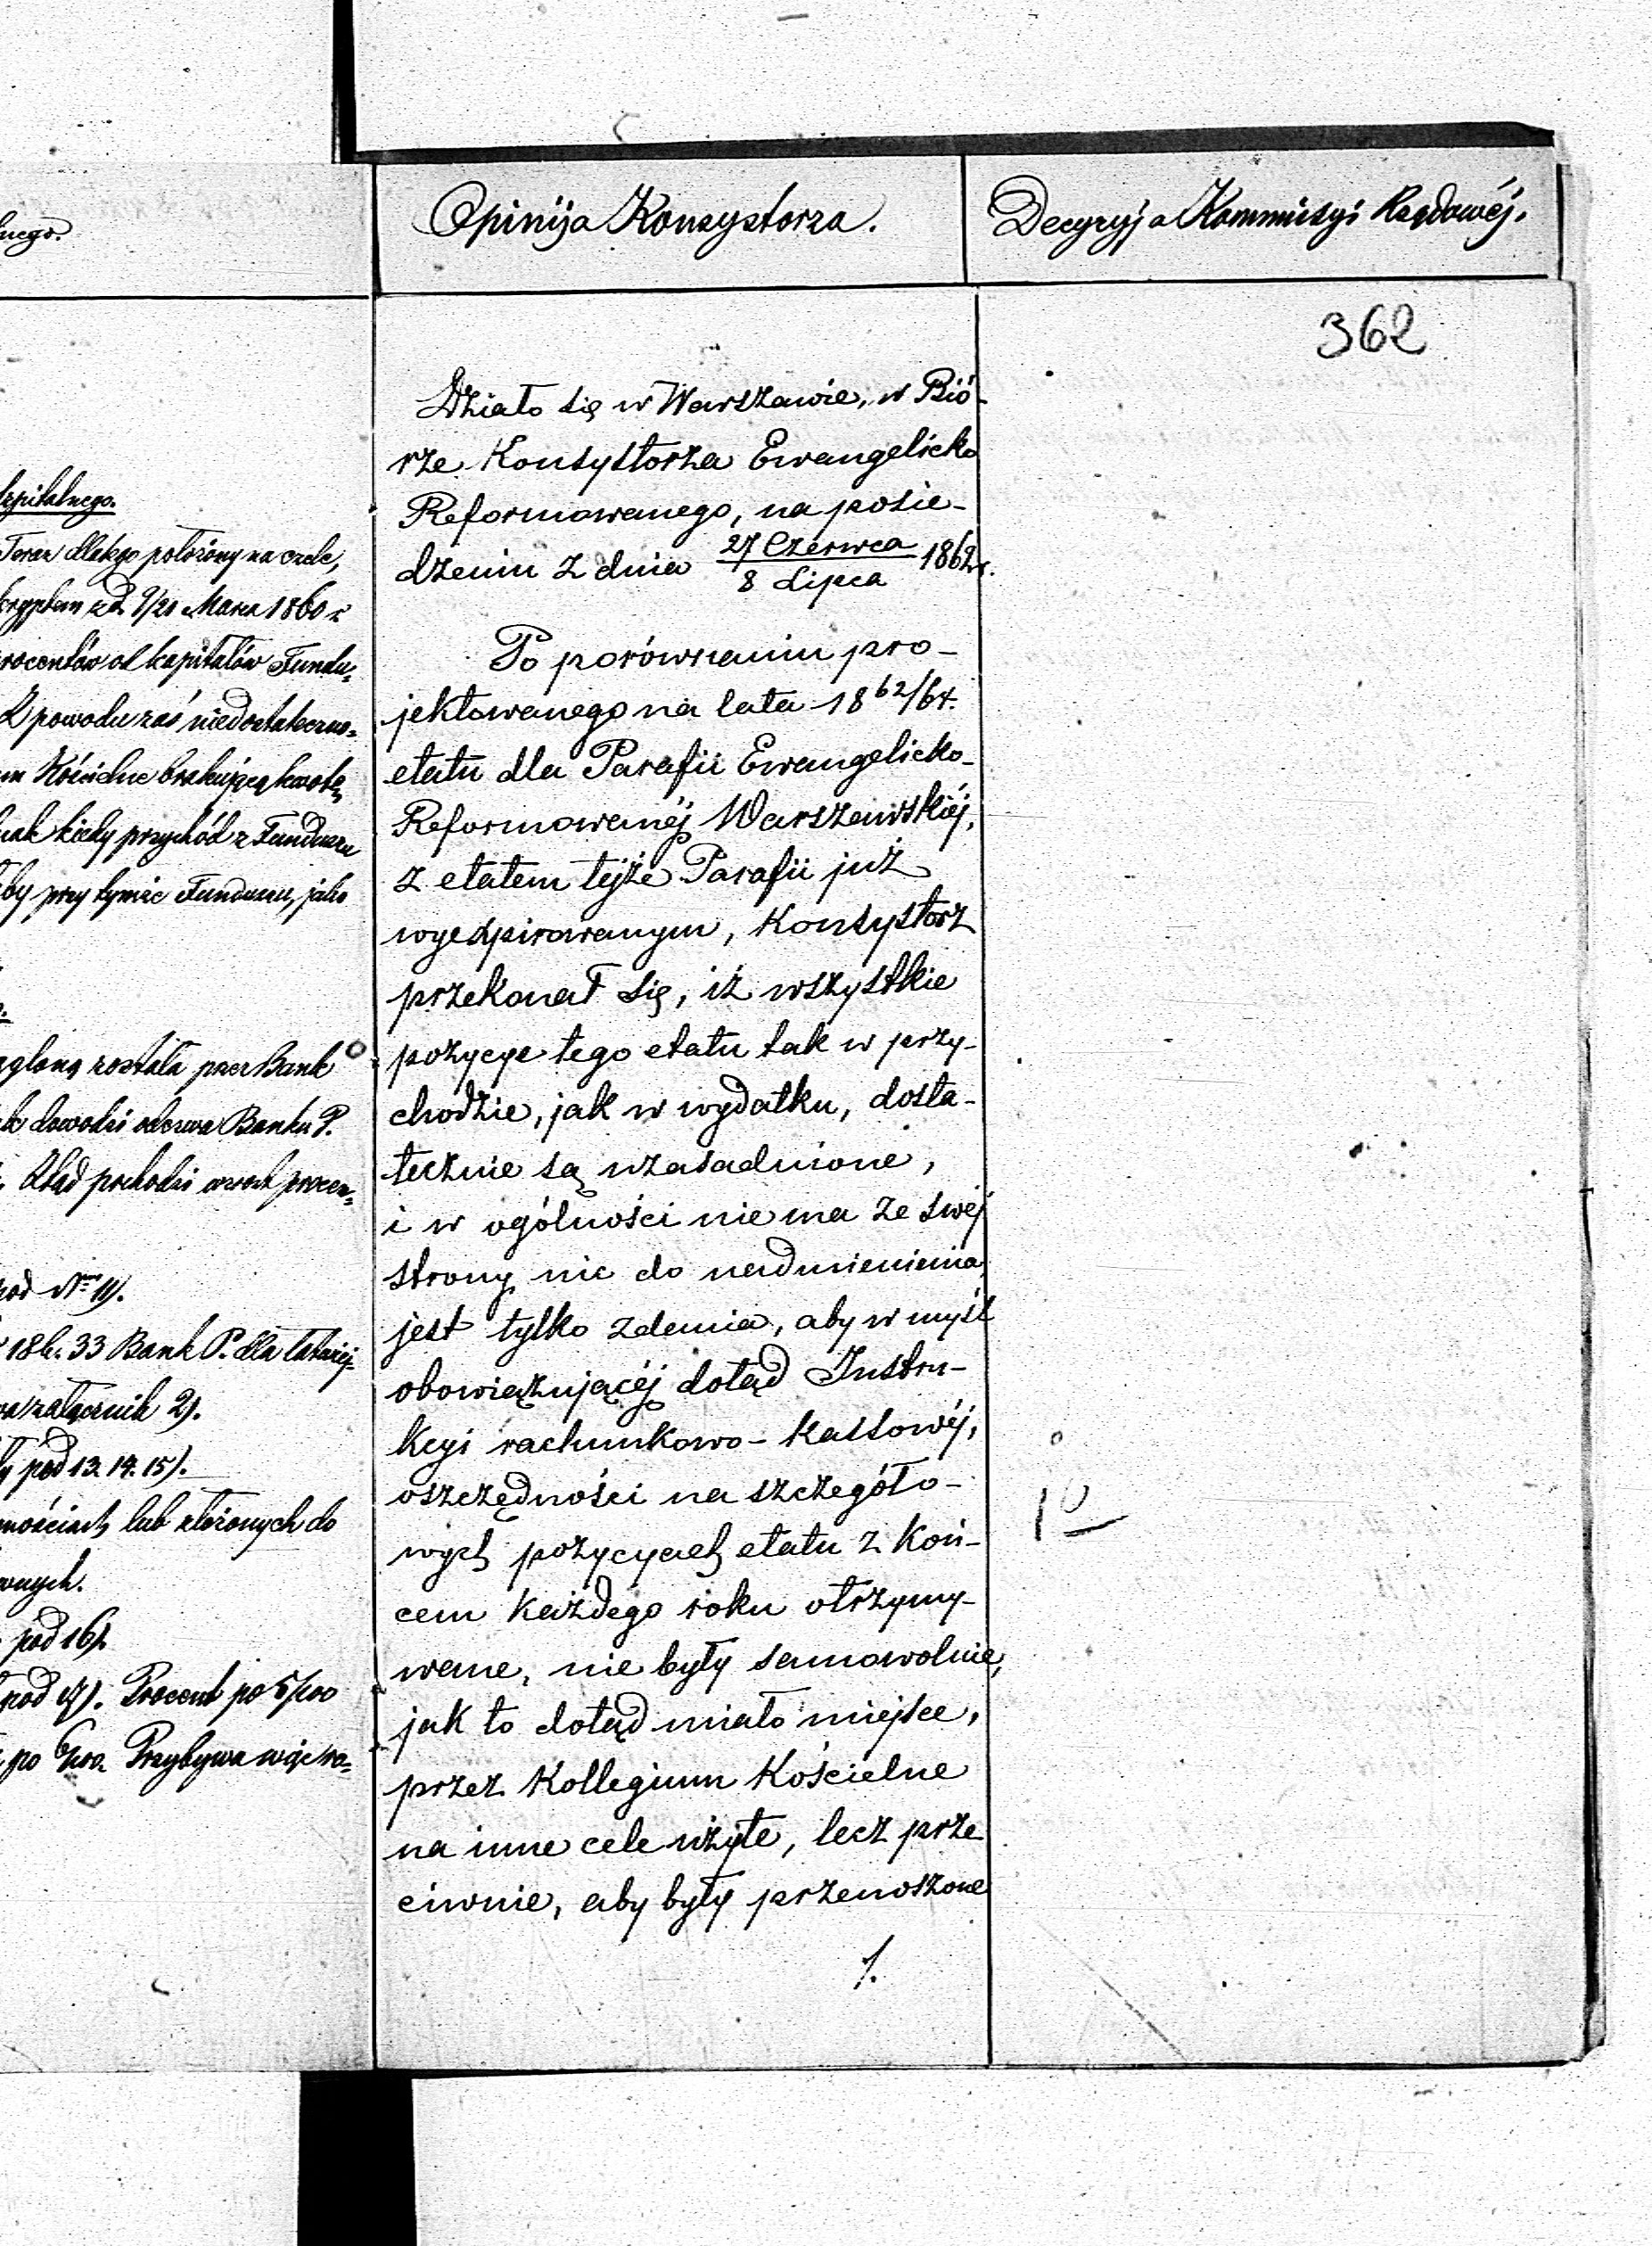 lnego.
Opinija Konsystorza.
Decyzyja Kommissyi Rządowéj.
362
Szpitalnego.
Teraz dlatego położony na czele,
z d. 9/21 Marca 1860 r
procentów od kapitałów Fundu=
Z powodu zaś niedostateczno=
Kościelne brakującą kwotę
kiedy przychód z Funduszu
by przy tymże Funduszu, jako
została przez Bank
dowodzi odezwa Banku P.
Ztąd pochodzi procen=
pod Nrem 11).
33 Bank P. dla
załącznik 2).
pod 13. 14. 15).
lub złożonych do
wnych.
pod 16).
pod Procent po 5/100
po 6/100. Przybywa więc ro=
Działo się w Warszawie, w Bió-
rze Konsystorza Ewangelicko
Reformowanego, na posie-
dzeniu z dnia 27 Czerwca / 8 Lipca 1862 r.
Po porównaniu pro-
jektowanego na lata 1862/64.
etatu dla Parafii Ewangelicko-
Reformowanéj Warszawskiéj,
z etatem tejże Parafii już
wyexpirowanym, Konsystorz
przekonał się, iż wszystkie
pozycye tego etatu tak w przy-
chodzie, jak w wydatku, dosta-
tecznie są uzasadnione,
i w ogólności nie ma ze swéj
strony nic do nadmienienia,
jest tylko zdania, aby w myśl
obowiązującéj dotąd Instru-
kcyi rachunkowo-kassowéj,
oszczędności na szczegóło-
wych pozycyach etatu z koń-
cem każdego roku otrzymy-
wane, nie były samowolnie,
jak to dotąd miało miejsce,
przez Kollegium Kościelne
na inne cele użyte, lecz prze
ciwnie, aby były przenoszone
/.